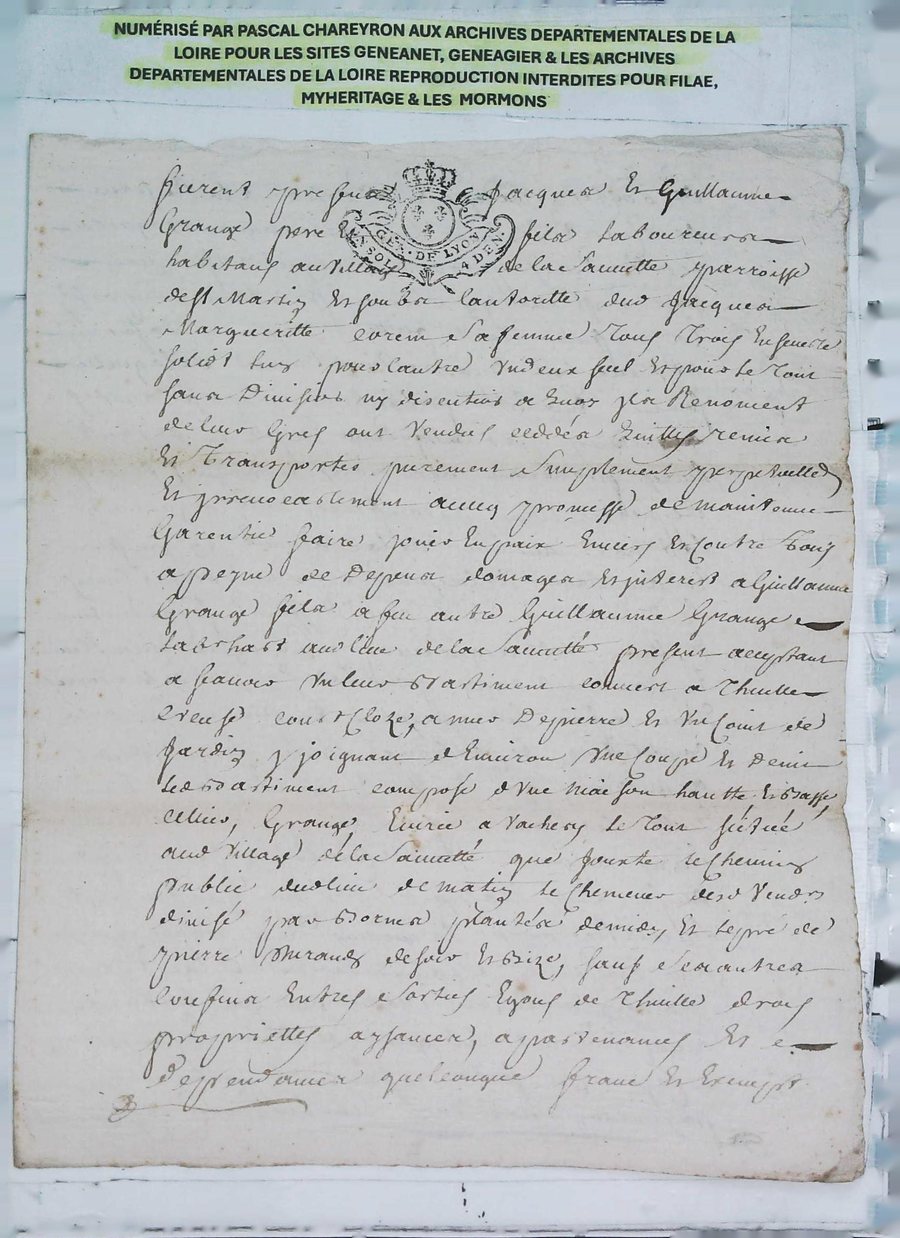 NUMÉRISÉ PAR PASCAL CHAREYRON AUX ARCHIVES DEPARTEMENTALES DE LA
LOIRE POUR LES SITES GENEANET, GENEAGIER & LES ARCHIVES
DEPARTEMENTALES DE LA LOIRE REPRODUCTION INTERDITES POUR FILAE,
MYHERITAGE & LES MORMONS
GEN. DE LYON
UN SOL 4 DEN.
furent presents Jacques Et Guillaume
Grange pere fils Laboureurs
habitans au village de la parroisse
de St Martin Et soubs lautoritte dud Jacques
Margueritte sa femme tous trois Ensemble
solidt lun pour lautre Un deux seul Et pour le tout
sans Division ny a quoy ils Renoncent
de leur Gres ont Vendus ceddés remis
Et Transportes purement simplement
Et jrrevocablement avecq promesse de maintenue
Garentie faire jouir En paix Envers Et Contre tous
a peyne de Depens domages Et jnterest a Guillaume
Grange fils a feu autre Guillaume Grange
audlieu de la present acceptant
a scavoir Un leur Bastiment couvert a Thuille
creuse Et Un Coint de
Jardin y joignant dEnviron Une Coupe Et Demie
led Bastiment composé dUne maison hautte Et Basse,
Grange, Ecurie a vaches le tout scitué
aud village de la que jouxte le Chemin
public dudlieu de matin desd Vendrs
divisé par Bornes plantées de midy Et le pré de
pierre de soir Et Bize, sauf ses autres
confins Entrés sorties de Thuille drois
proprietés aysances, apartenances Et
dependances quelconque franc Et Exempt